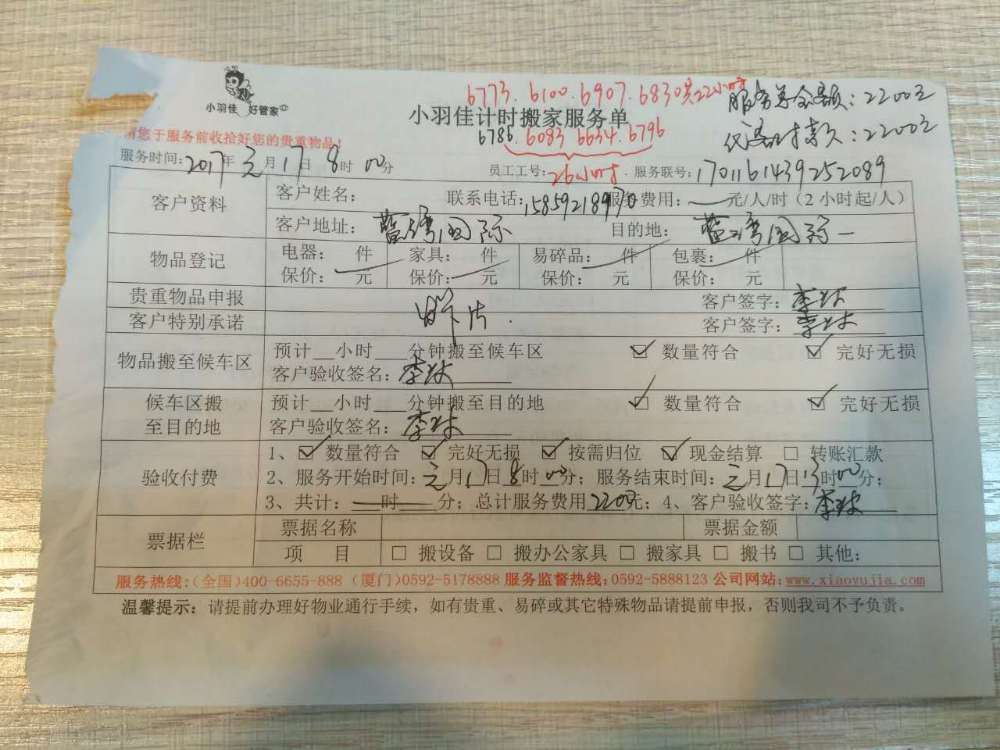 小羽佳 好管家
6773.6100.6907.6830共22小时
服务总金额:2200元
小羽佳计时搬家服务单
6786.6083 6634.6796
付款:2200元
请您于服务前收拾好您的贵重物品!
服务时间:2017年元月17日8时00分
员工工号:26小时 服务联号:1701161439252089
客户资料
客户姓名: 联系电话: 服务费用: 元/人/时(2小时起/人)
客户地址:蓝湾国际 目的地:蓝湾国际
物品登记
电器: 件 家具: 件 易碎品: 件 包裹: 件
保价: 元 保价: 元 保价: 元 保价: 元
贵重物品申报 客户签字:
客户特别承诺 客户签字:
物品搬至候车区
预计__小时__分钟搬至候车区 ☑ 数量符合 ☑ 完好无损
客户验收签名:
候车区搬至目的地
预计__小时__分钟搬至目的地 ☑ 数量符合 ☑ 完好无损
客户验收签名:
验收付费
1、☑ 数量符合 ☑ 完好无损 ☑ 按需归位 ☑ 现金结算 □ 转账汇款
2、服务开始时间:元月17日8时00分;服务结束时间:元月17日13时00分;
3、共计:时 分;总计服务费用2200元;4、客户验收签字:
票据栏
票据名称 票据金额
项 目 □ 搬设备 □ 搬办公家具 □ 搬家具 □ 搬书 □ 其他:
服务热线:(全国)400-6655-888 (厦门)0592-5178888 服务监督热线:0592-5888123 公司网站:www.xiaoyujia.com
温馨提示:请提前办理好物业通行手续,如有贵重、易碎或其它特殊物品请提前申报,否则我司不予负责。